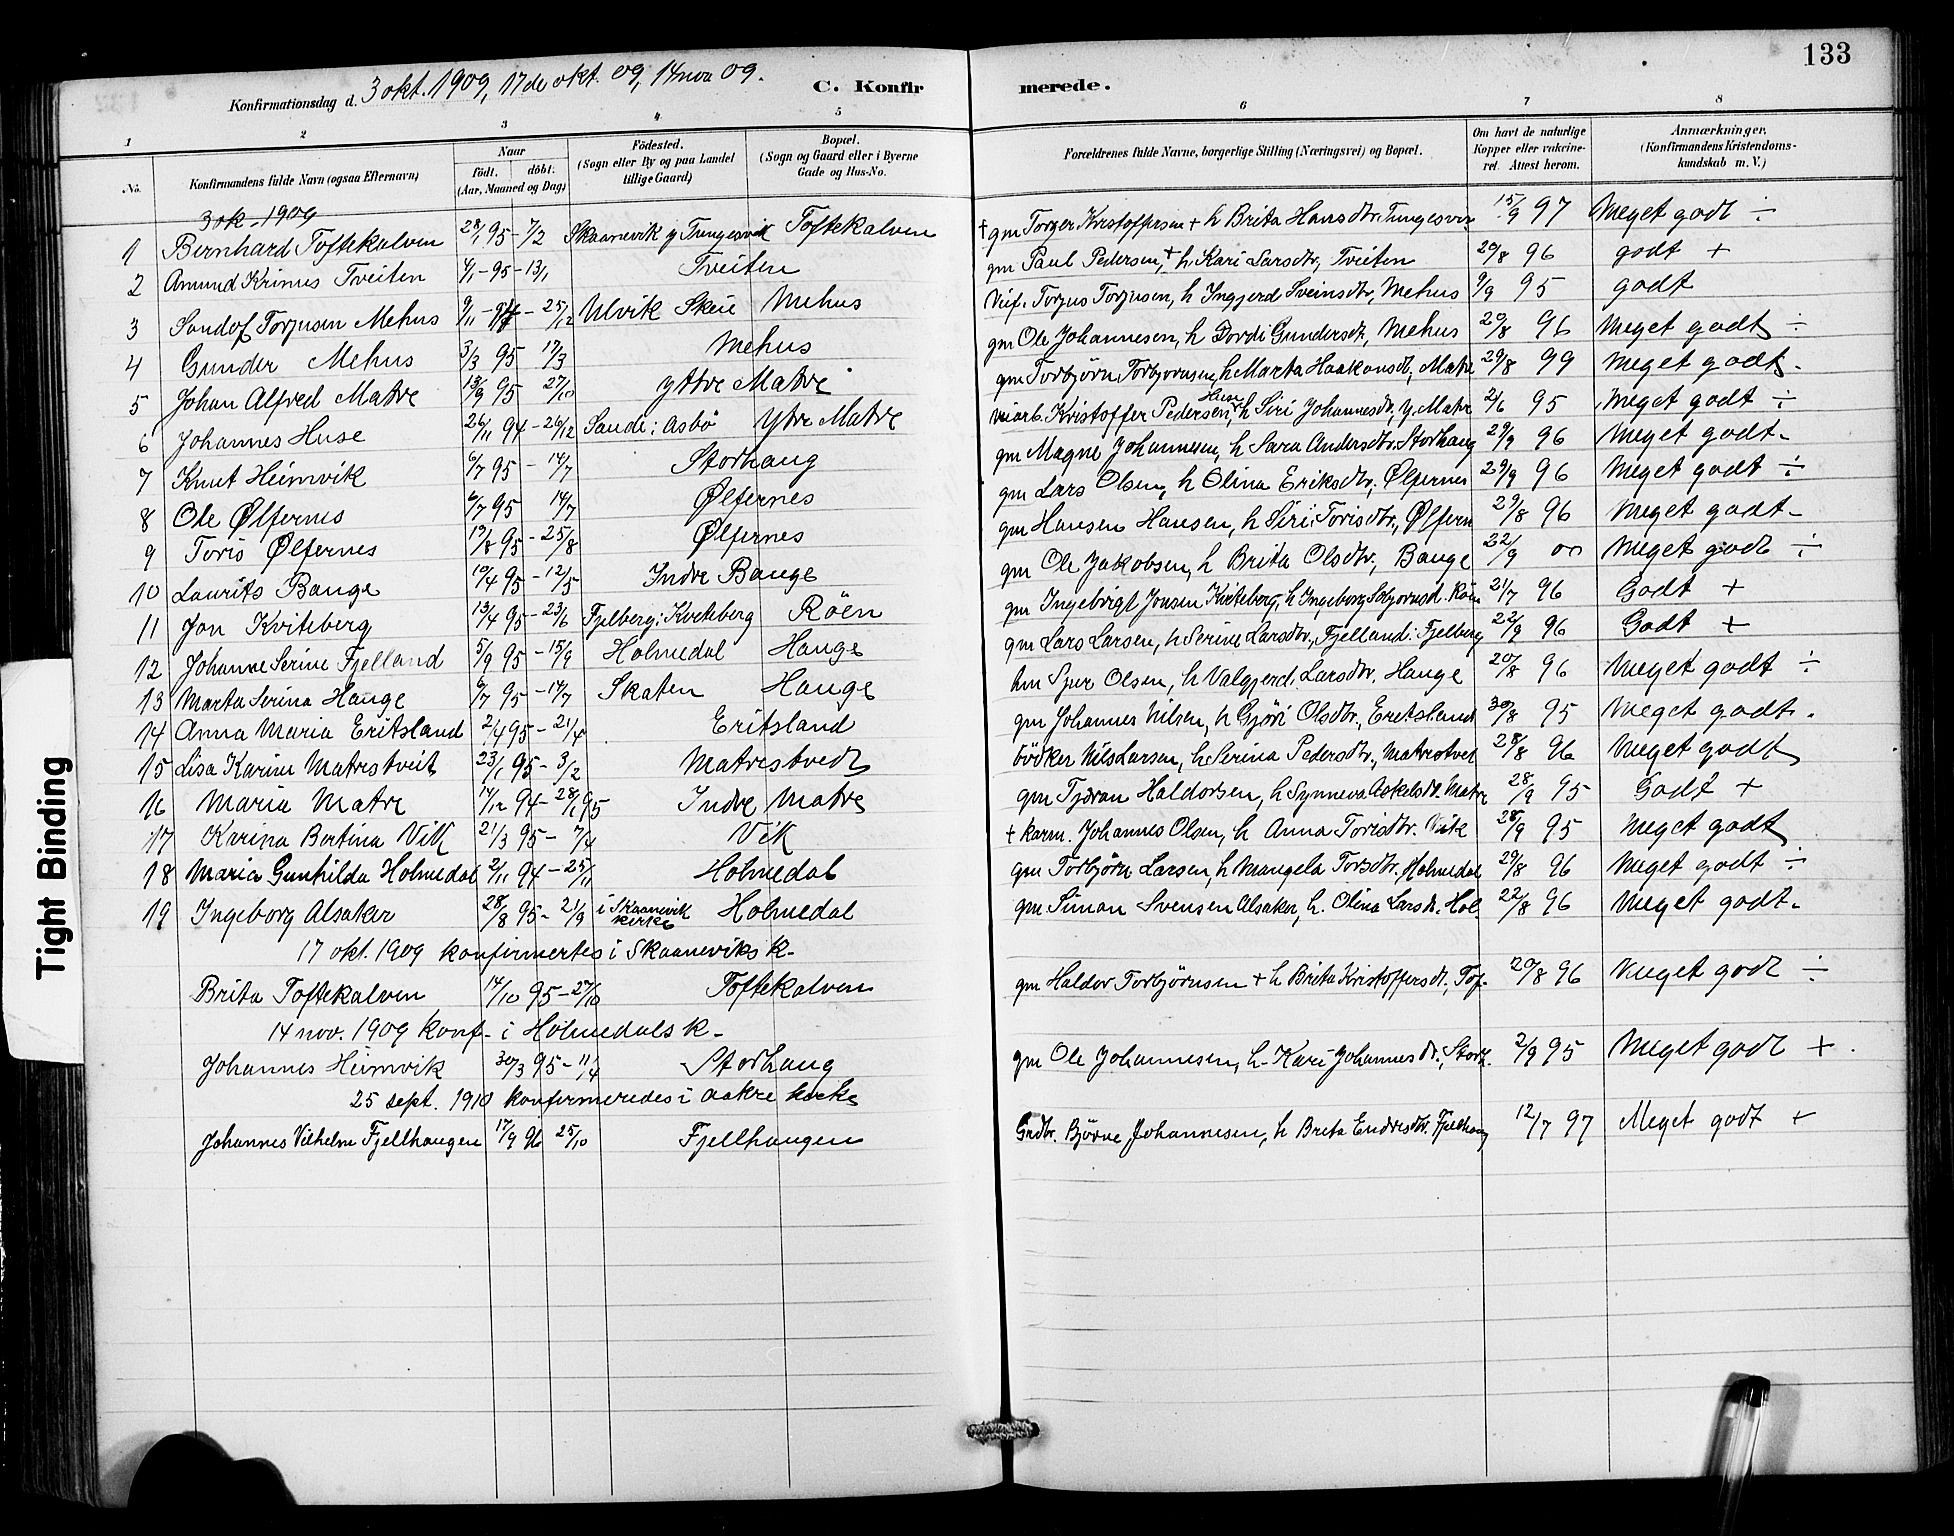 133
Konfirmationsdag d. 3 okt. 1909, 17de okt. 09, 14 nov 09.
C. Konfirmerede.
1 2 3 4 5 6 7 8
No. Konfirmandens fulde Navn (ogsaa Efternavn) Naar født. døbt. (Aar, Maaned og Dag) Födested. (Sogn eller By og paa Landet tillige Gaard) Bopæl. (Sogn og Gaard eller i Byerne Gade og Hus-No. Forældrenes fulde Navne, borgerlige Stilling (Næringsvei) og Bopæl. Om havt de naturlige Kopper eller vakcineret. Attest herom. Anmærkninger. (Konfirmandens Kristendomskundskab m. V.)
3 ok. 1909
1 Bernhard Toftekalven 28/1 95 - 7/2 Skaanevik y Tungesvik Toftekalven + gm Torger Kristoffersen + h Brita Hansdtr. Tungesvik 15/9 97 Meget godt ÷
2 Amund Krinus Tveiten 4/1 - 95 - 13/1 Tveiten gm Paul Pedersen, + h. Kari Larsdtr, Tveiten 20/8 96 godt +
3 Sandof Torjusen Mehus 9/11 - 94 - 25/12 Ulvik Skeie Mehus Torjus Torjusen, h Ingjerd Sveinsdtr, Mehus 9/9 95 godt
4 Gunder Mehus 3/3 95 17/3 Mehus gm Ole Johannesen, h Gundersdt, Mehus 20/8 96 Meget godt ÷
5 Johan Alfred Matre 13/9 95 27/10 Yttre Matre gm Torbjörn Torbjornsen, h Marta Haakonsdt, Matre 29/8 99 Meget godt.
6 Johannes Huse 26/11 94 - 26/12 Sande: Asbö Ytre Matre Kristoffer Pedersen Huse, h Siri Johannesdtr, y. Matre 2/6 95 Meget godt ÷
7 Knut Heimvik 6/7 95 - 14/7 Storhaug gm Magne Johannesen, h Sara Andersdtr. Storhaug 29/9 96 Meget godt -
8 Ole Ølfernes 6/7 95 14/7 Ølfernes gm Lars Olsen, h Olina Eriksdtr, Ølfernes 29/9 96 Meget godt ÷
9 Toris Ølfernes 13/8 95 - 25/8 Ølfernes gm Hansen Hansen, h Siri Torisdtr., Ølfern 29/8 96 Meget godt -
10 Laurits Bauge 10/4 95 - 12/5 Indre Bauge gm Ole Jakobsen, h Brita Olsdtr, Bauge 22/9 00 Meget godt ÷
11 Jon Kviteberg 13/4 95 - 23/6 Fjelberg: Kviteberg Röen gm Ingebrigt Jonsen Kviteberg, h Ingeborg 21/7 96 Godt +
12 Johanne Serine Fjelland 5/9 95 - 15/9 Holmedal Hauge gm Lars Larsen, h Serine Larsdtr, Fjelland: Fjelberg 22/9 96 Godt +
13 Marta Serina Hauge 6/7 95 - 14/7 Skaten Hauge hm Sjur Olsen, h Valgjerd Larsdtr. Hauge 20/8 96 Meget godt ÷
14 Anna Maria Eritsland 2/4 95 - 21/4 Eritsland gm Johannes Nilsen, h Gjöri Olsdtr., Eretsland 30/8 95 Meget godt.
15 Lisa Karine Matrestveit 23/1 95 - 3/2 Matrestvedt bödker Nils Larsen, h Serina Pedersdtr., Matrestvet 28/8 96 Meget godt
16 Maria Matre 14/12 94 - 28/1 95 Indre Matre gm Tjæran Haldorsen, h Synneva Askelsdt. Matre 28/9 95 Godt +
17 Karina Bertina Vik 21/3 95 - 7/4 Vik + karm. Johannes Olsen, h Anna Torisdtr. Vik 28/9 95 Meget godt
18 Maria Gunhilda Holmedal 2/11 94 - 25/11 Holmedal gm Torbjörn Larsen, h Mangela Torsdtr. Holmedal 29/8 96 Meget godt ÷
19 Ingeborg Alsaker 28/8 95 - 21/9 i Skaanevik kirke Holmedal gm. Simon Svensen Alsaker, h. Olina Larsdt. Hol 22/8 96 Meget godt.
17 okt. 1909 konfirmertes i Skaaneviks k.
Brita Toftekalven 14/10 95 - 27/10 Toftekalven gm Haldor Torbjörnsen + h Brita Kristoffersdt., Tof. 20/8 96 Meget godt ÷
14 nov. 1909 konf. i Holmedals k.
Johannes Heimvik 30/3 95 - 11/4 Storhaug gm Ole Johannesen, h. Kari Johannesdt., Storh. 2/9 95 Meget godt +
25 sept. 1910 konfirmeredes i aakre kirke
Johannes Vilhelm Fjellhaugen 17/9 96 25/10 Fjellhaugen Grdbr. Björne Johannesen, h Brita Endresdtr. Fjellhaug 12/7 97 Meget godt +
Tight Binding